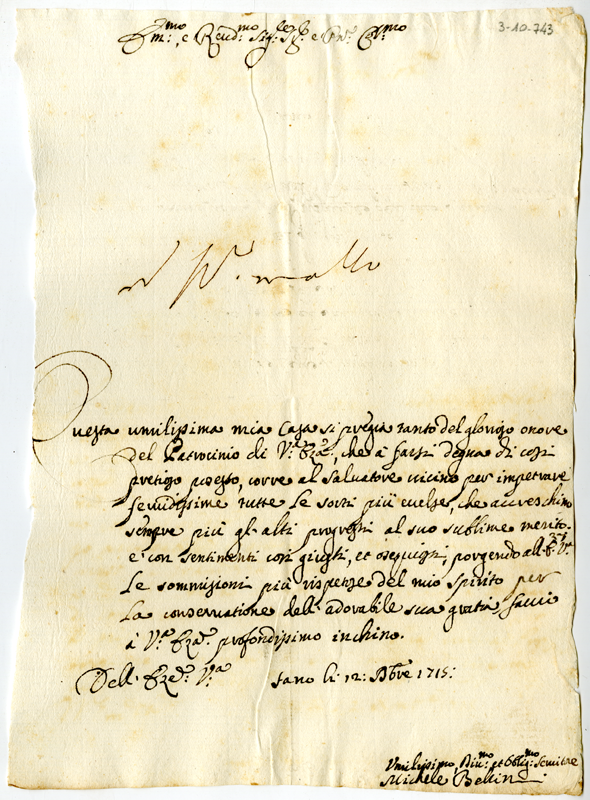 3-10-743
Em:mo, e Reud:mo Sig:re Sig:re e Pne Col:mo
Questa umilissima mia Casa si preggia tanto del glorioso onore
del Patrocinio di V:ra Eza:, che à farsi degna di così
pretioso possesso, corre al Salvatore vicino per impetrare
feruidissime tutte le sorti più eccelse, che accreschino
sempre più gl'alti progressi al suo sublime merito.
e con sentimenti così giusti, et ossequiosi, porgendo all'E:za V:ra
le sommissioni più rispettose del mio spirito per
la conseruatione dell'adorabile sua gratia faccio
à V:ra Eza: profondissimo inchino.
Dell'Eza: V:ra
Fano li: 12: Xbre 1715:
Umilissimo, Diu:mo et Oblig:mo Seruitre
Michele Bellini